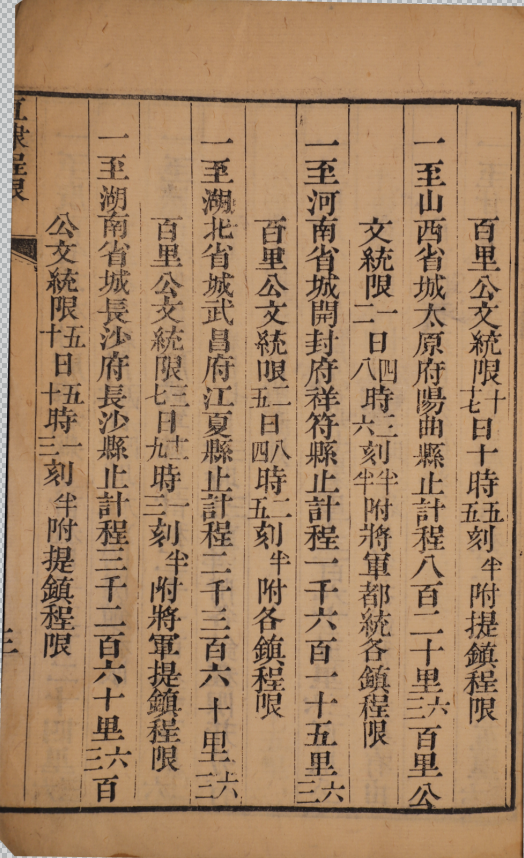 百里公文統限十十七日十時五五刻半附提鎮程限
一至山西省城太原府陽曲縣止計程八百二十里六三百里公
文統限一二日四八時二六刻半半附將軍都統各鎮程限
一至河南省城開封府祥符縣止計程一千六百一十五里六三
百里公文統限二五日八四時二五刻半附各鎮程限
一至湖北省城武昌府江夏縣止計程二千三百六十里六三
百里公文統限三七日十二九時一三刻半附將軍提鎮程限
一至湖南省城長沙府長沙縣止計程三千二百六十里六三百
公文統限五十日五十時一三刻半附提鎮程限
直隸程限
三